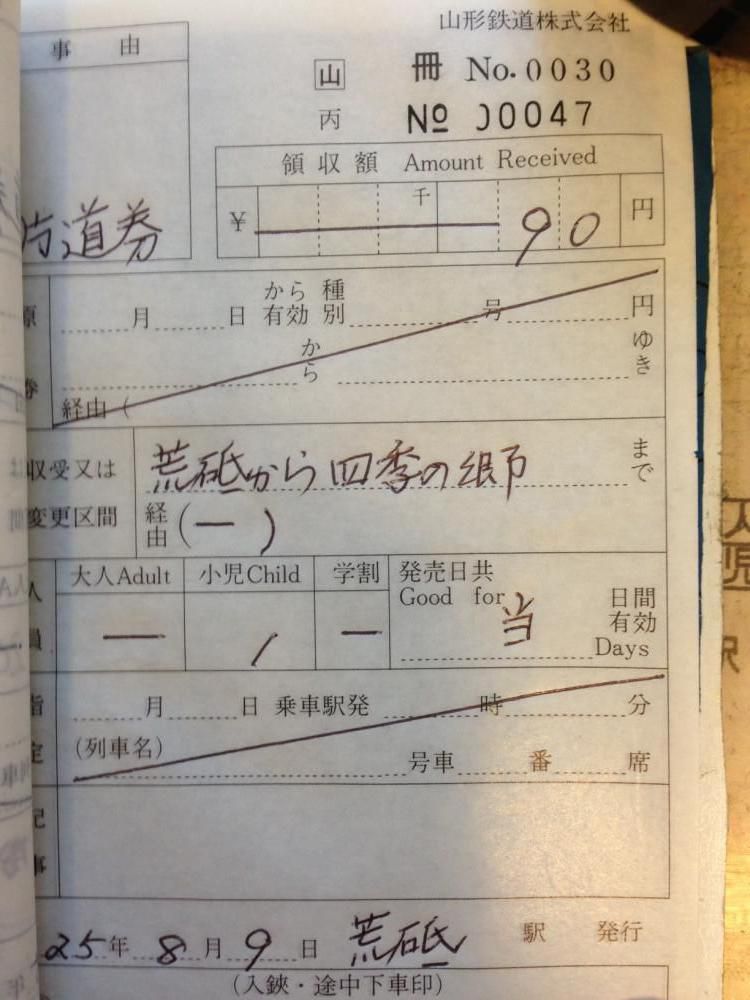 山形鉄道株式会社
事 由
山 冊 No.0030
丙 No 00047
領収額 Amount Received
片道券
千
¥ 90 円
原 月 日 から有効 種別 号 円
券 から ゆき
経由(
収受又は 荒砥から四季の郷 まで
変更区間 経由(ー)
人 大人Adult 小児Child 学割 発売日共
Good for 当 日間
員 ー 1 ー 有効
Days
指 月 日 乗車駅発 時 分
定 (列車名) 号車 番 席
記
事
25年 8月 9日 荒砥 駅 発行
(入鋏・途中下車印)